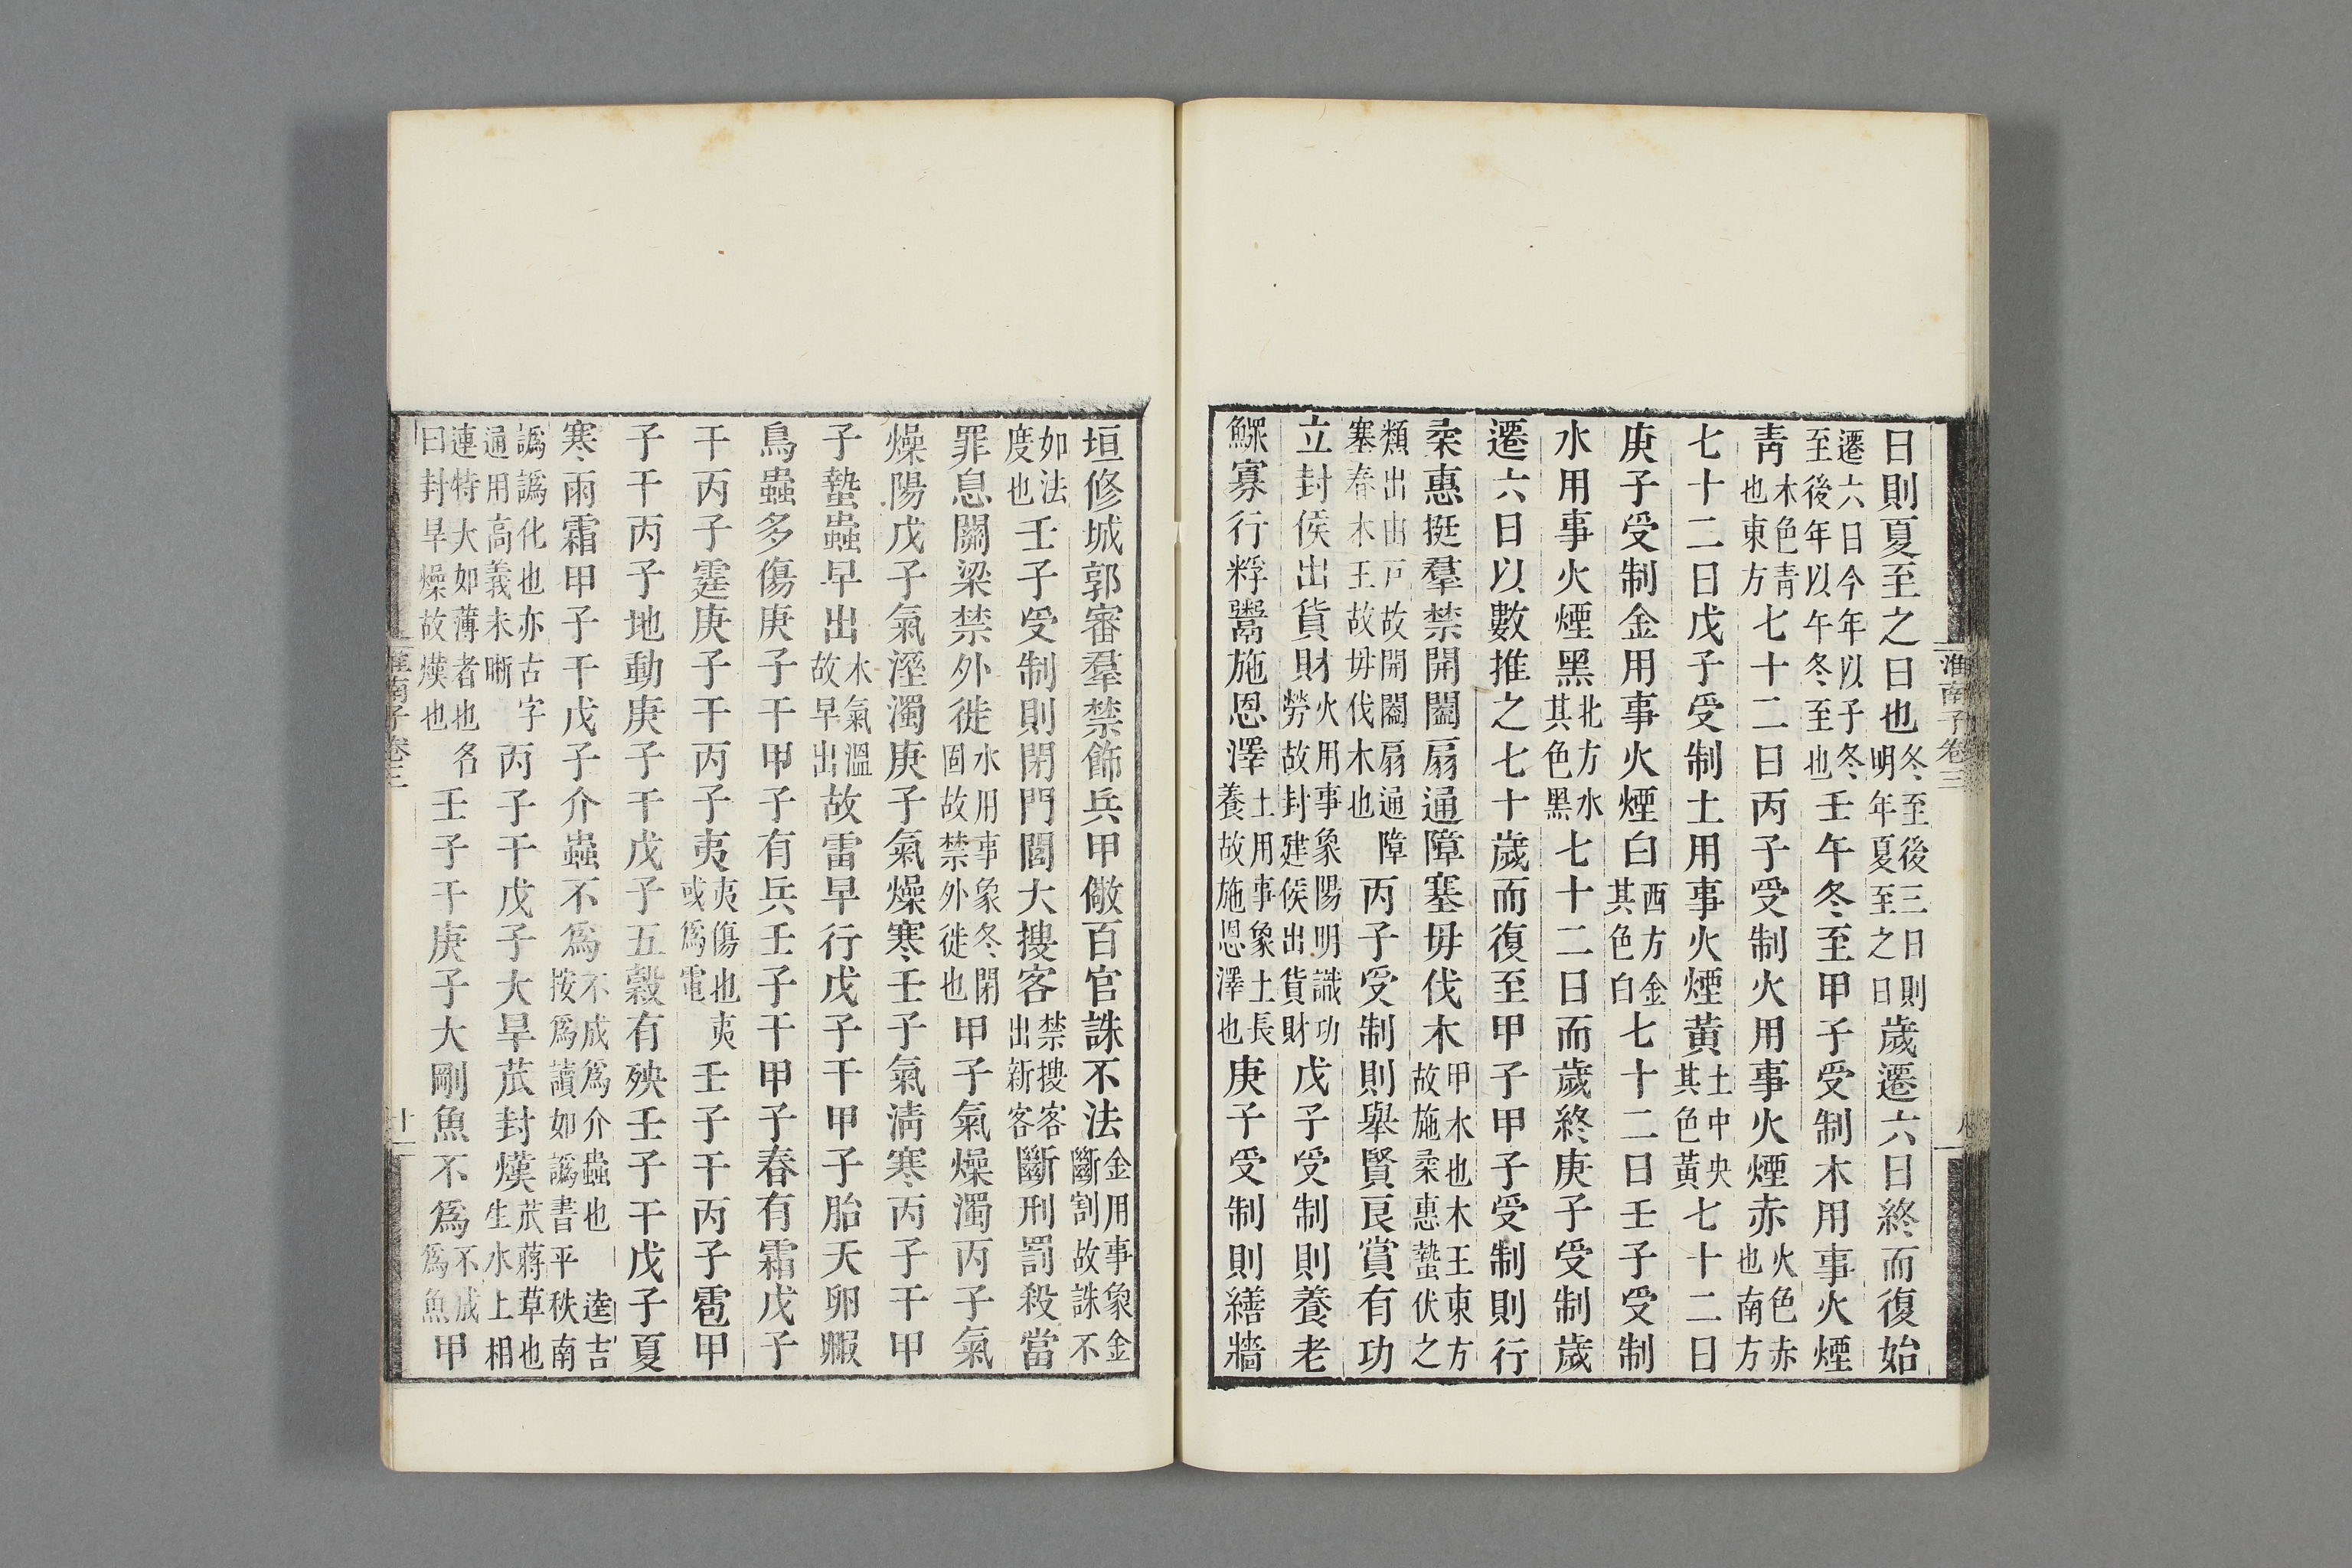 淮南子卷三
日則夏至之日也冬至後三日則明年夏至之日歲遷六日終而復始
遷六日今年以子冬至後年以午冬至也壬午冬至甲子受制木用事火煙
青木色青也東方七十二日丙子受制火用事火煙赤火色赤也南方
七十二日戊子受制土用事火煙黃土中央其色黃七十二日
庚子受制金用事火煙白西方金其色白七十二日壬子受制
水用事火煙黑北方水其色黑七十二日而歲終庚子受制歲
遷六日以數推之七十歲而復至甲子甲子受制則行
柔惠挺羣禁開闔扇通障塞毋伐木甲木也木王東方故施柔惠蟄伏之
類出由戸故開闔扇通障塞春木王故毋伐木也丙子受制則舉賢良賞有功
立封侯出貨財火用事象陽明識功勞故封建侯出貨財戊子受制則養老
鰥寡行粰鬻施恩澤土用事象土長養故施恩澤也庚子受制則繕牆
垣修城郭審羣禁飾兵甲儆百官誅不法金用事象金斷割故誅不
如法度也壬子受制則閉門閭大搜客禁搜客出新客斷刑罰殺當
罪息關梁禁外徙水用事象冬閉固故禁外徙也甲子氣燥濁丙子氣
燥陽戊子氣溼濁庚子氣燥寒壬子氣清寒丙子干甲
子蟄蟲早出木氣溫故早出故雷早行戊子干甲子胎夭卵毈
鳥蟲多傷庚子干甲子有兵壬子干甲子春有霜戊子
干丙子霆庚子干丙子夷夷傷也夷或爲電壬子干丙子雹甲
子干丙子地動庚子干戊子五穀有殃壬子干戊子夏
寒雨霜甲子干戊子介蟲不爲不成爲介蟲也逵吉按爲讀如譌書平秩南
譌譌化也亦古字通用高義未晰丙子干戊子大旱苽封熯苽蔣草也生水上相
連特大如薄者也名曰封旱燥故熯也壬子干庚子大剛魚不爲不成爲魚甲
淮南子卷三
十一